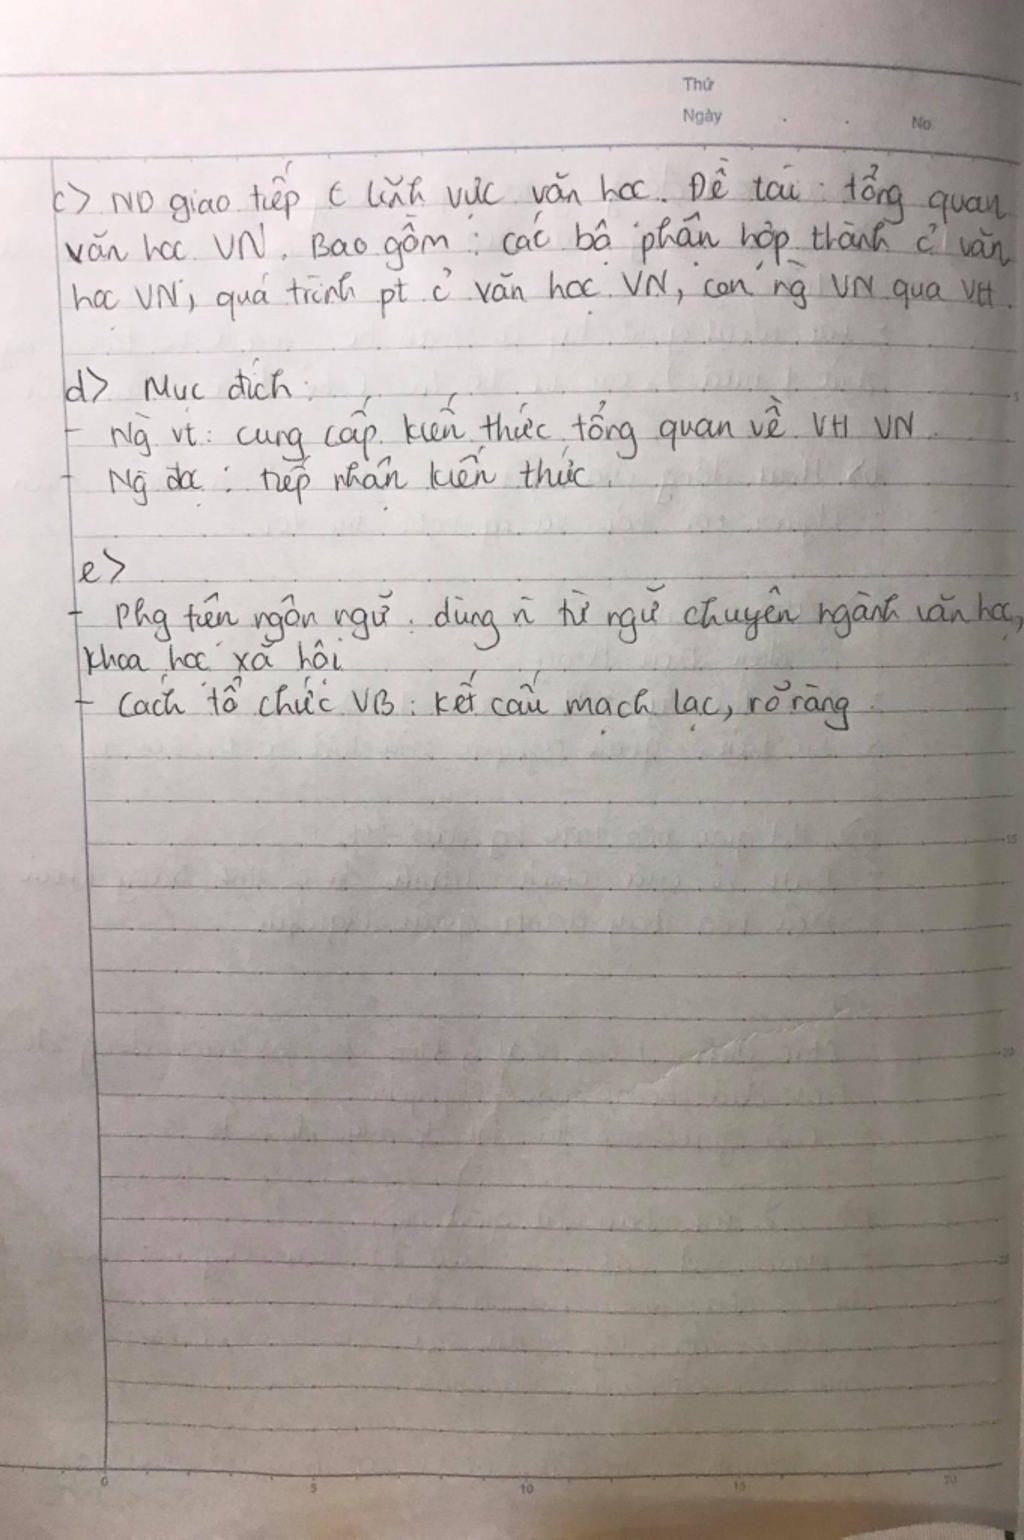 Thứ
Ngày . . No.
c> ND giao tiếp € lĩnh vực văn học. Đề tài : tổng quan
văn học VN. Bao gồm : các bộ phận hợp thành củ văn
học VN, quá trình pt củ văn học VN, con ng VN qua VH.
d> Mục đích :
- Ng vt : cung cấp kiến thức tổng quan về VH VN
- Ng đọc : tiếp nhận kiến thức.
e>
- Phg tiện ngôn ngữ : dùng n từ ngữ chuyên ngành văn học,
khoa học xã hội
- Cách tổ chức VB : kết cấu mạch lạc, rõ ràng.
5
15
20
25
0 5 10 15 20